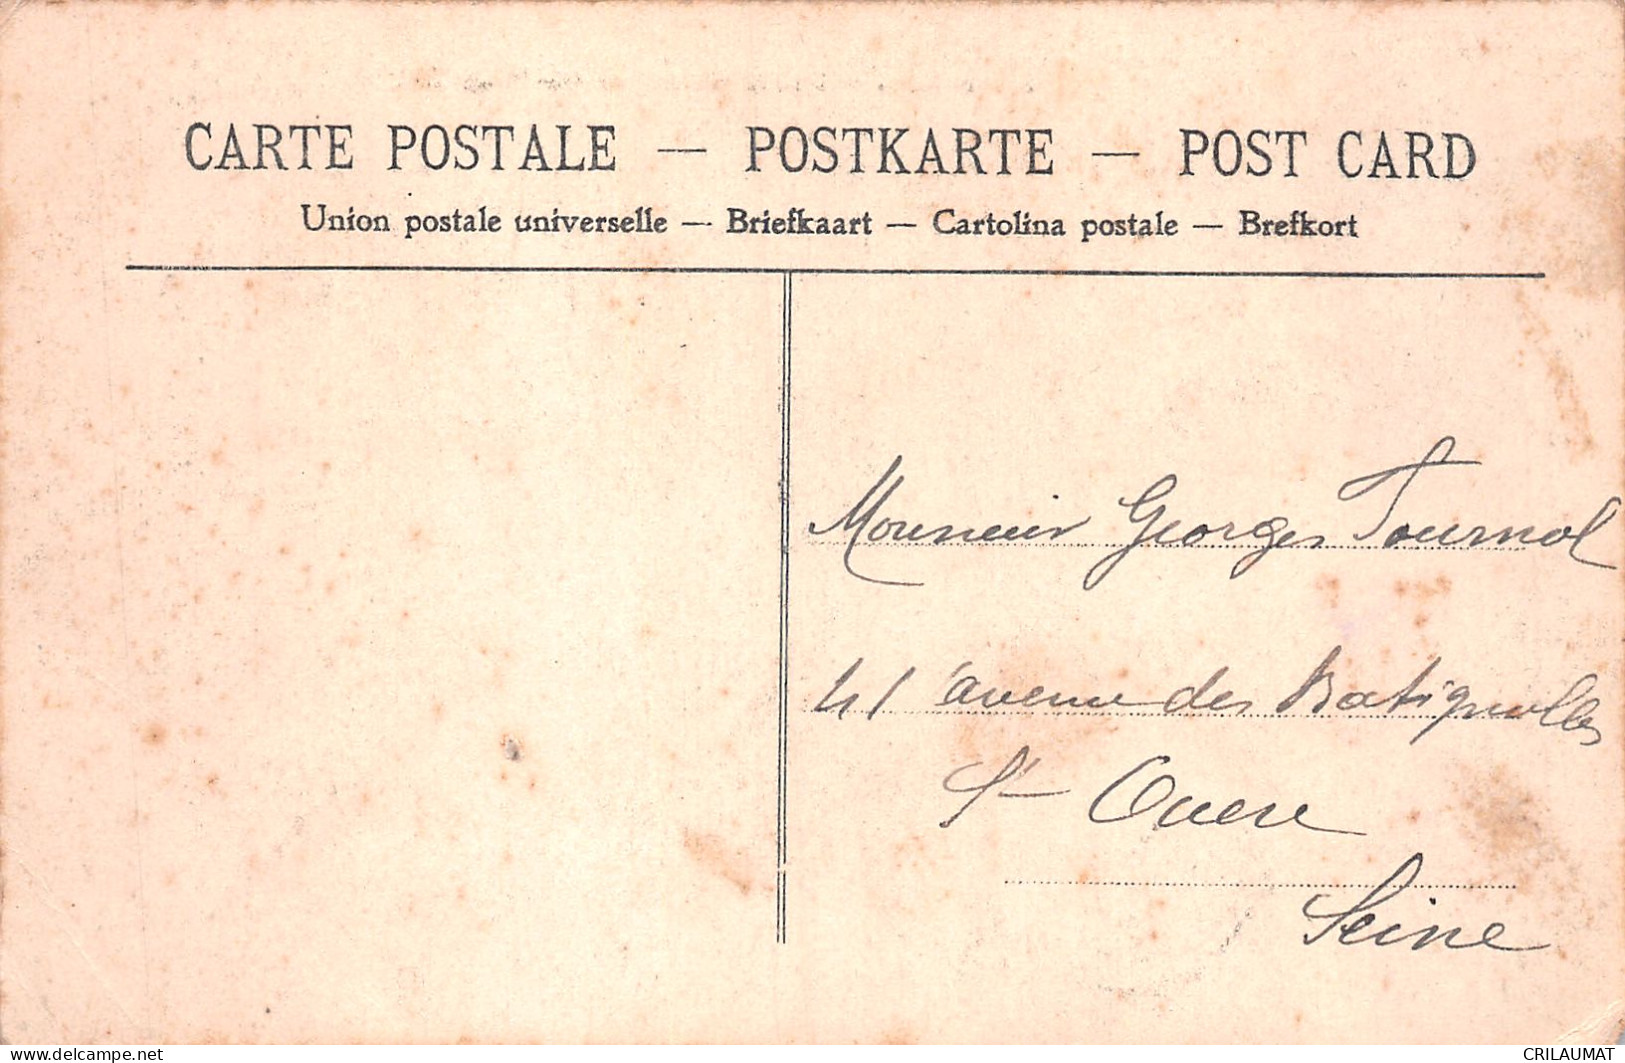 CARTE POSTALE — POSTKARTE — POST CARD
Union postale universelle — Briefkaart — Cartolina postale — Brefkort
Monsieur Georges Tournol
41 avenue des Batignolles
St Ouen
Seine
www.delcampe.net
CRILAUMAT